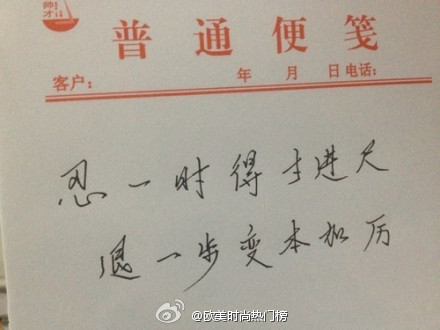 帅才
普通便笺
客户： 年 月 日 电话：
忍一时得寸进尺
退一步变本加厉
@欧美时尚热门榜